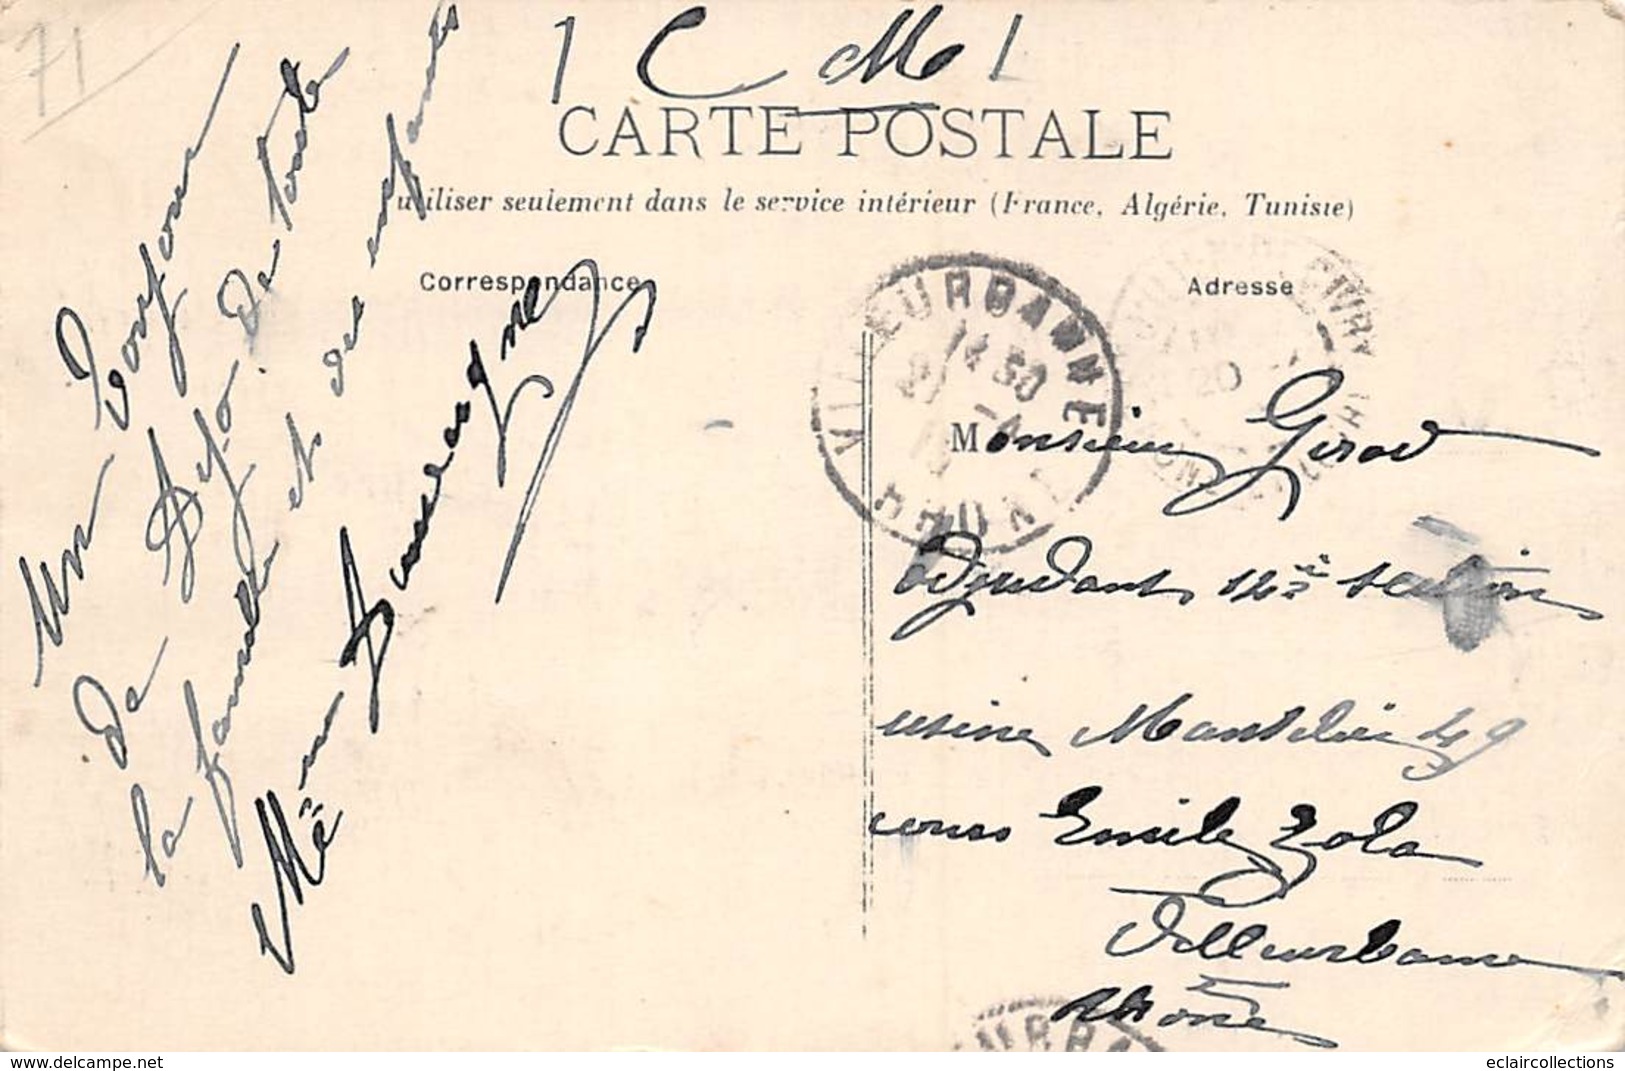 71
1 C M 1
CARTE POSTALE
utiliser seulement dans le service intérieur (France, Algérie, Tunisie)
Correspondance
Adresse
Un bonjour
de Dijo de toute
la famille et des enfants
VILLEURBANNE
14 30
RHONE
20
Monsieur Girod
adjudant 14è section
usine 49
cours Emile Zola
Villeurbanne
Rhône
URBA
www.delcampe.net
eclaircollections